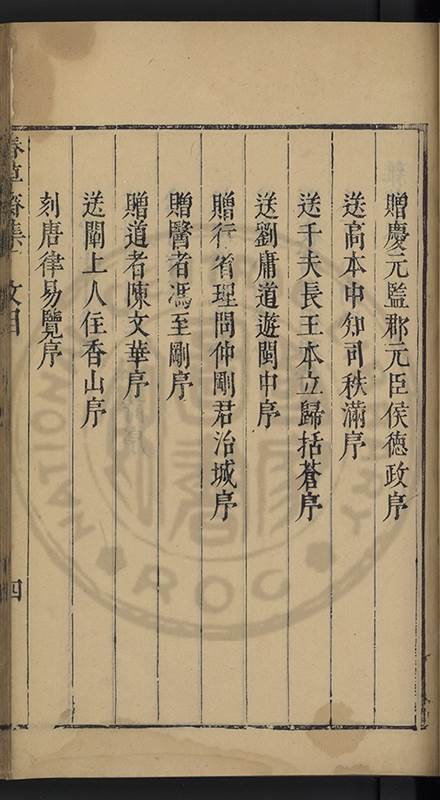 贈慶元監郡元臣侯德政序
送高本中知司秩滿序
送千夫長王本立歸括蒼序
送劉庸道遊閩中序
贈行省理問仲剛君治城序
贈醫者馮至剛序
贈道者陳文華序
送闡上人住香山序
刻唐律易覽序
春草齋集 文目 四